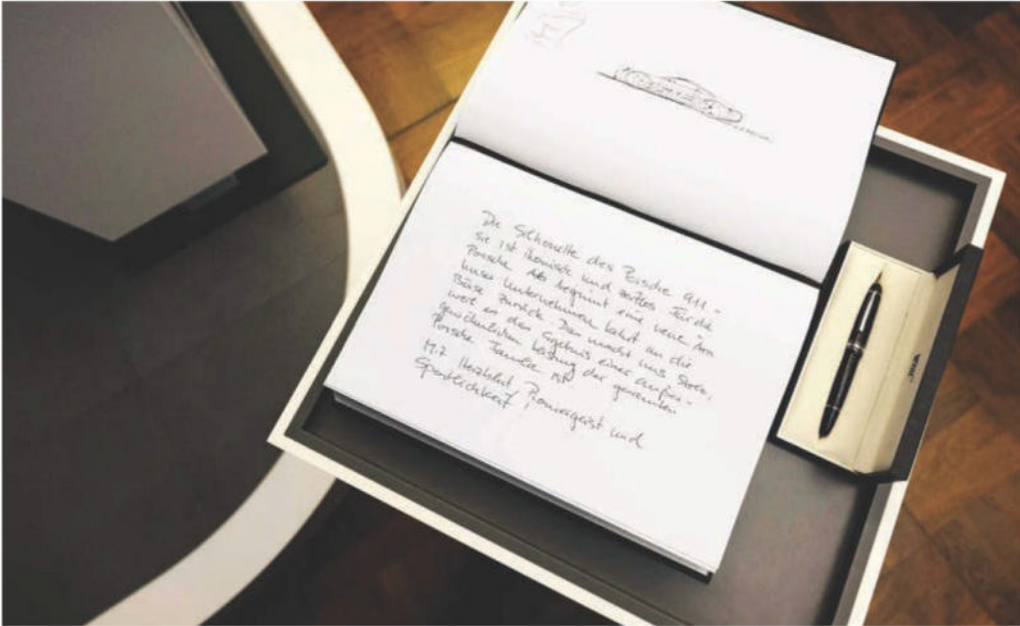 Die Silhouette des Porsche 911 -
sie ist ikonisch und zeitlos. Für die
Porsche AG beginnt eine neue Ära
Unser Unternehmen kehrt an die
Börse zurück. Das macht uns stolz,
weil es das Ergebnis einer außer-
gewöhnlichen Leistung der gesamten
Porsche Familie ist
Mit Herzblut, Pioniergeist und
Sportlichkeit!